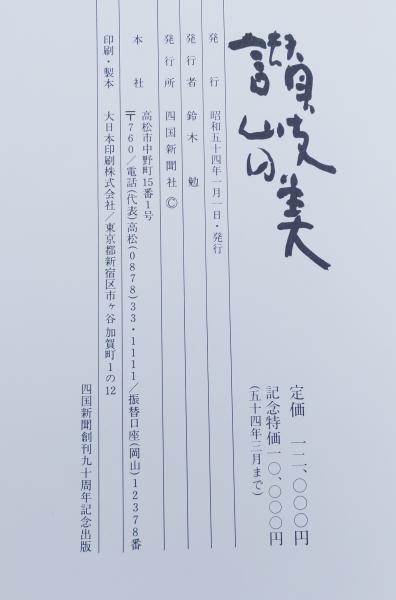 讃岐の美
定価　一二、〇〇〇円
記念特価一〇、〇〇〇円
(五十四年三月まで)
発行　昭和五十四年一月一日・発行
発行者　鈴木　勉
発行所　四国新聞社 ©
本社　高松市中野町15番1号
〒760／電話(代表)高松(0878)33・1111／振替口座(岡山)12378番
印刷・製本　大日本印刷株式会社／東京都新宿区市ヶ谷加賀町1の12
四国新聞創刊九十周年記念出版